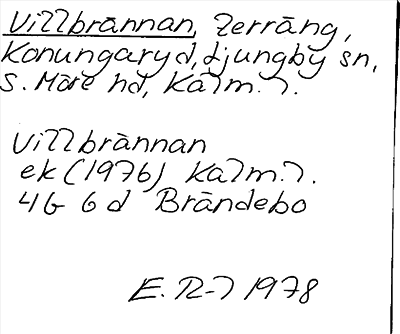 Villbrännan, Terräng,
Konungaryd, Ljungby sn,
S. Möre hd, Kalm. l.
Villbrännan
ek (1976) Kalm. l.
4G 6d Brändebo
E. R-l 1978